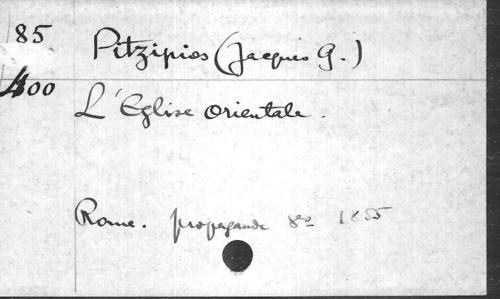 85
Pitzipios (Jacques G.)
400
L'Eglise orientale.
Rome. propagande 8º 1855